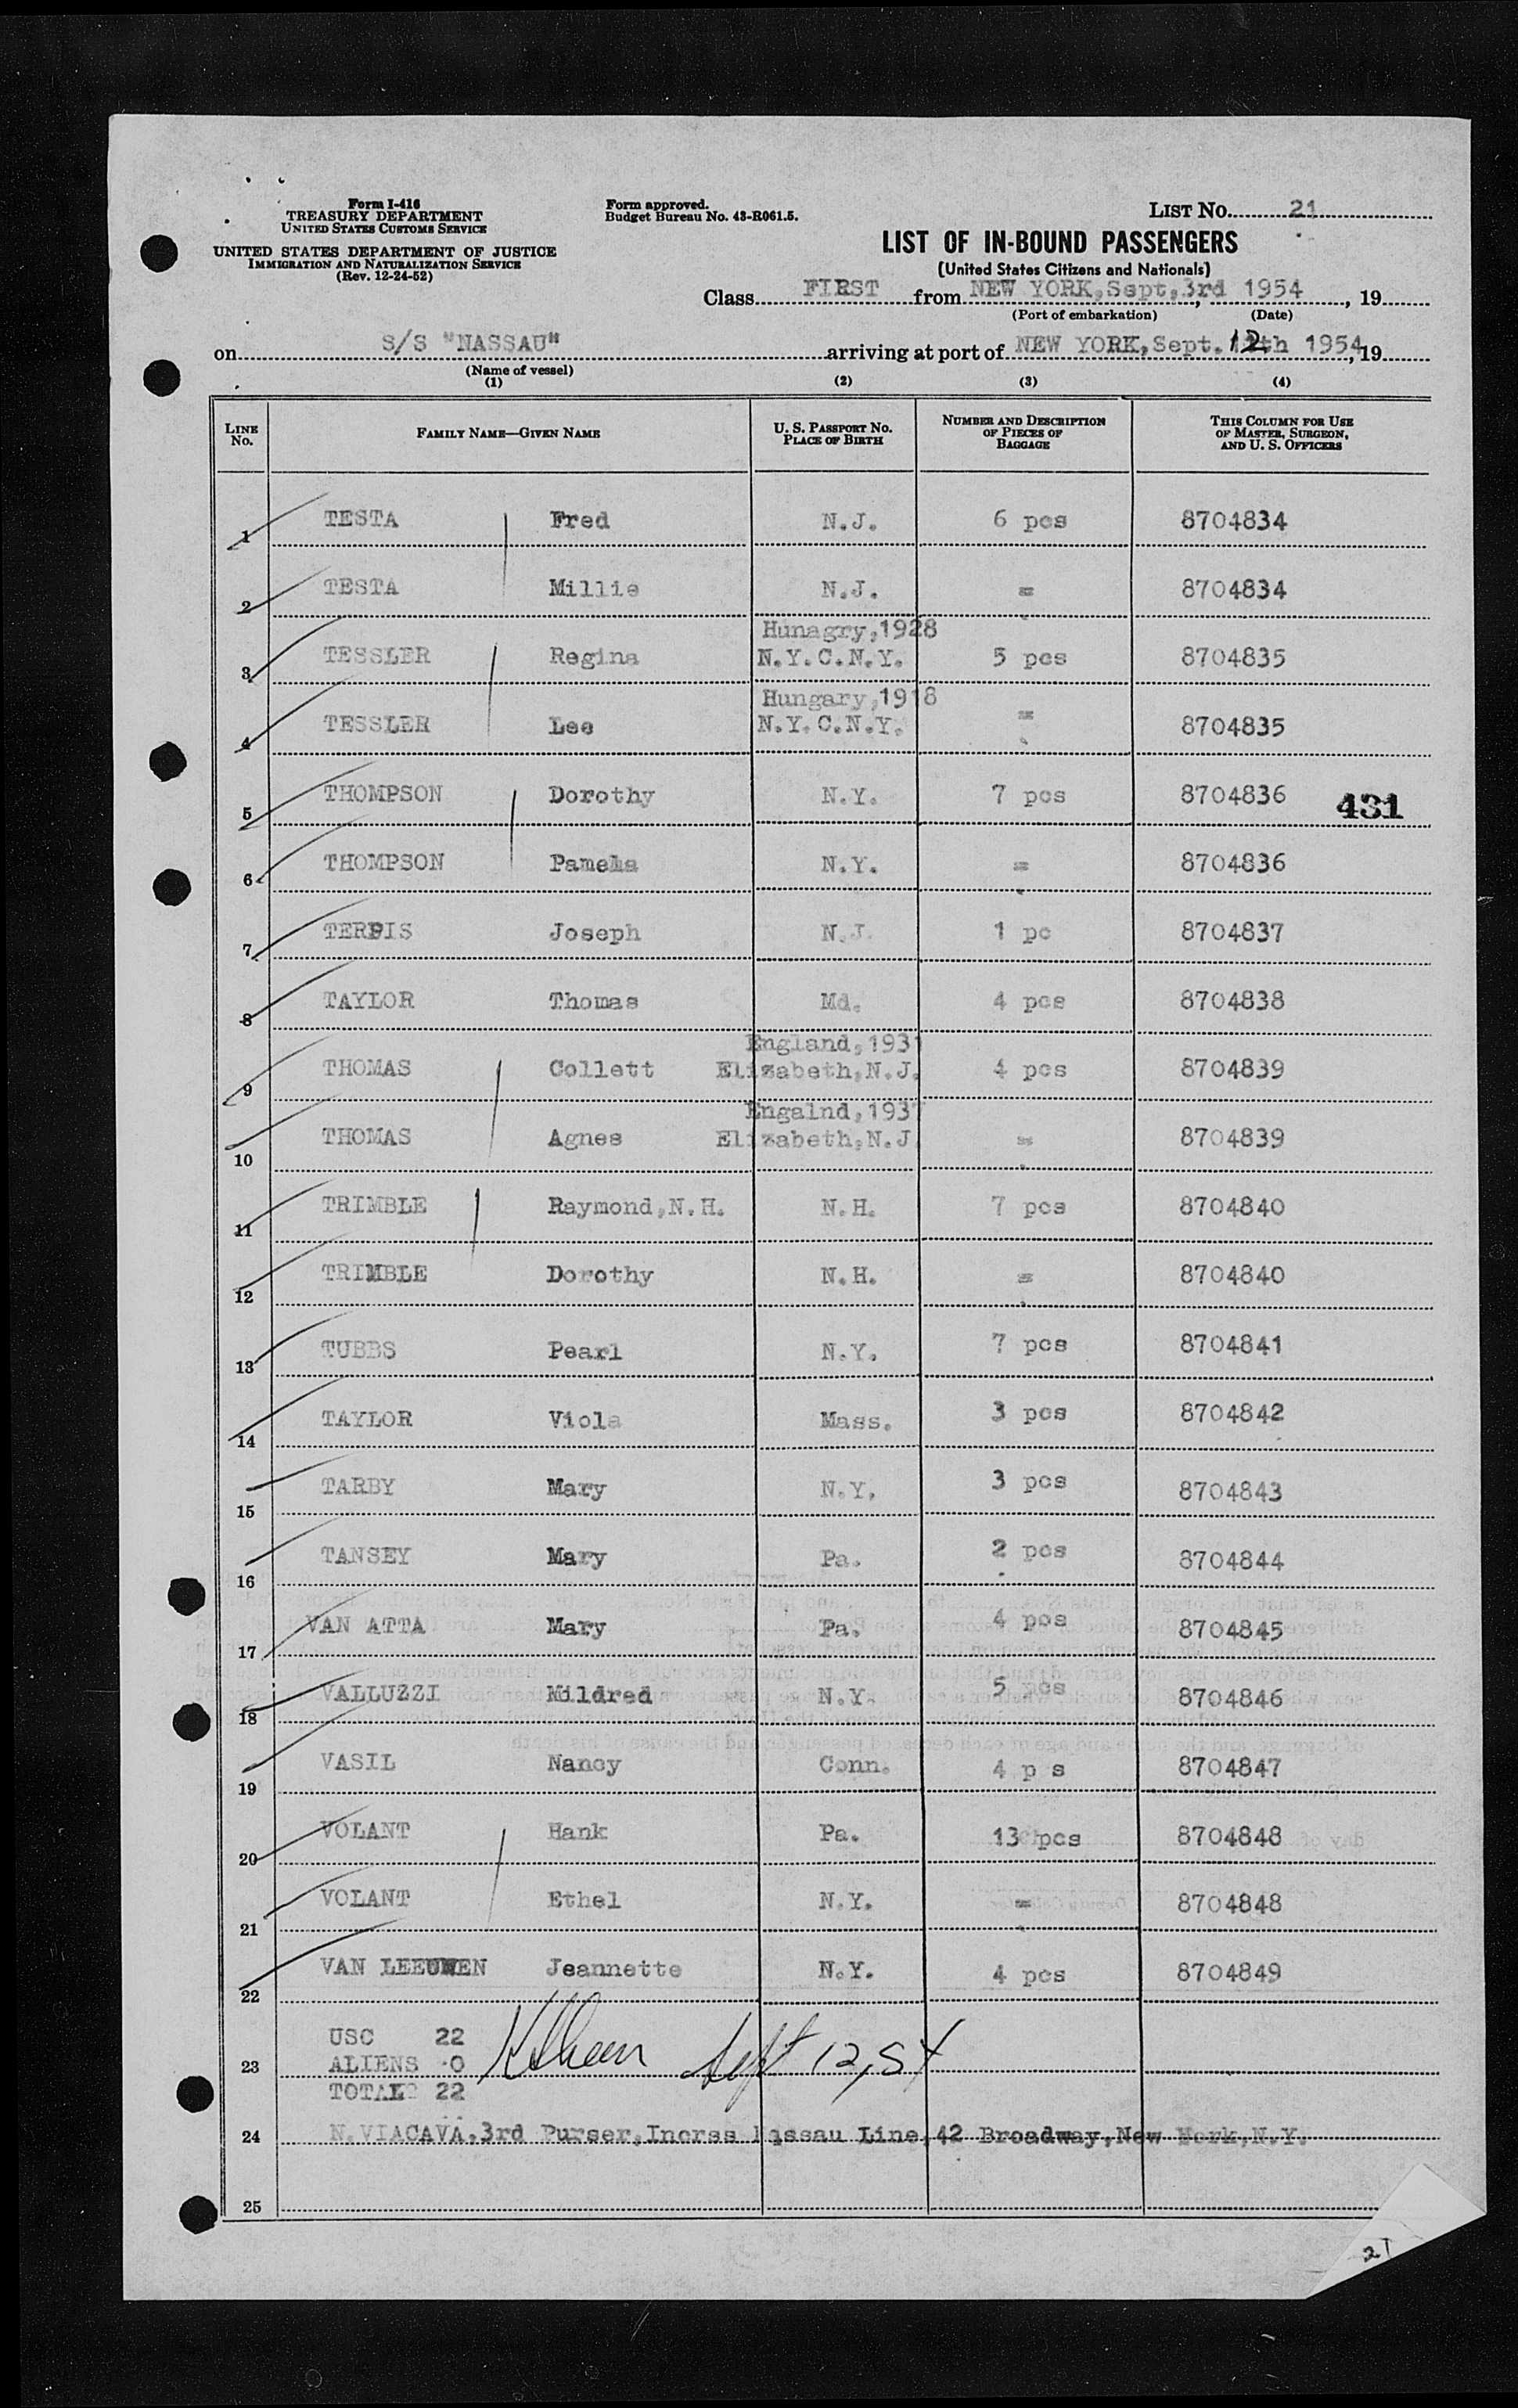 Form I-416
TREASURY DEPARTMENT
UNITED STATES CUSTOMS SERVICE
UNITED STATES DEPARTMENT OF JUSTICE
IMMIGRATION AND NATURALIZATION SERVICE
(Rev. 12-24-52)
Form approved.
Budget Bureau No. 43-R061.5.
LIST NO. 21
LIST OF IN-BOUND PASSENGERS
(United States Citizens and Nationals)
Class FIRST from NEW YORK, Sept, 3rd 1954, 19
(Port of embarkation) (Date)
on S/S "NASSAU" arriving at port of NEW YORK, Sept. 12th 1954, 19
(Name of vessel)
(1) (2) (3) (4)
LINE NO. FAMILY NAME—GIVEN NAME U. S. PASSPORT NO. PLACE OF BIRTH NUMBER AND DESCRIPTION OF PIECES OF BAGGAGE THIS COLUMN FOR USE OF MASTER, SURGEON, AND U. S. OFFICERS
1 TESTA Fred N.J. 6 pcs 8704834
2 TESTA Millie N.J. = 8704834
Hunagry,1928
3 TESSLER Regina N.Y.C.N.Y. 5 pcs 8704835
Hungary,1918
4 TESSLER Lee N.Y.C.N.Y. = 8704835
5 THOMPSON Dorothy N.Y. 7 pcs 8704836 431
6 THOMPSON Pamela N.Y. = 8704836
7 Joseph N.J. 1 pc 8704837
8 TAYLOR Thomas Md. 4 pcs 8704838
England,1931
9 THOMAS Collett Elizabeth,N.J. 4 pcs 8704839
Engalnd,1937
10 THOMAS Agnes Elizabeth,N.J. = 8704839
11 TRIMBLE Raymond,N.H. N.H. 7 pcs 8704840
12 TRIMBLE Dorothy N.H. = 8704840
13 TUBBS Pearl N.Y. 7 pcs 8704841
14 TAYLOR Viola Mass. 3 pcs 8704842
15 TARBY Mary N.Y. 3 pcs 8704843
16 TANSEY Mary Pa. 2 pcs 8704844
17 VAN ATTA Mary Pa. 4 pcs 8704845
18 VALLUZZI Mildred N.Y. 5 pcs 8704846
19 VASIL Nancy Conn. 4 p s 8704847
20 VOLANT Hank Pa. 13 pcs 8704848
21 VOLANT Ethel N.Y. = 8704848
22 VAN LEEUWEN Jeannette N.Y. 4 pcs 8704849
USC 22
23 ALIENS 0 Sept 12, 54
TOTAL 22
24 N.VIACAVA,3rd Purser,Incrss Nassau Line,42 Broadway,New York,N.Y.
25
21